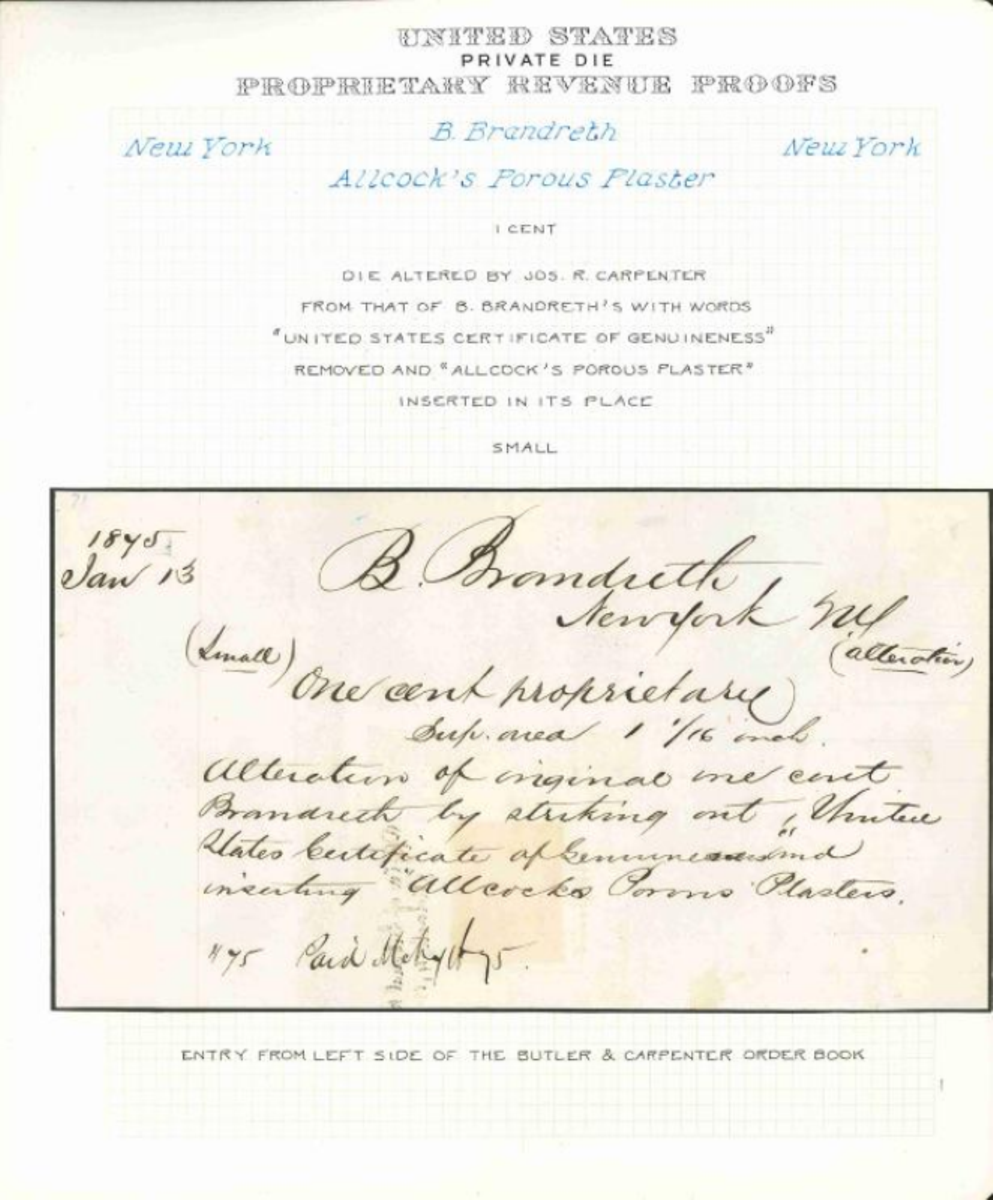 UNITED STATES
PRIVATE DIE
PROPRIETARY REVENUE PROOFS
New York B. Brandreth New York
Allcock's Porous Plaster
1 CENT
DIE ALTERED BY JOS. R. CARPENTER
FROM THAT OF B. BRANDRETH'S WITH WORDS
"UNITED STATES CERTIFICATE OF GENUINENESS"
REMOVED AND "ALLCOCK'S POROUS PLASTER"
INSERTED IN ITS PLACE
SMALL
1875
Jan 13
B. Brandreth
New York NY
(Small) (alteration)
One cent proprietary
Sup. area 1 1/16 inch.
Alteration of original one cent
Brandreth by striking out "United
States Certificate of Genuineness" and
inserting Allcocks Porous Plasters.
75 Paid 75.
ENTRY FROM LEFT SIDE OF THE BUTLER & CARPENTER ORDER BOOK
1